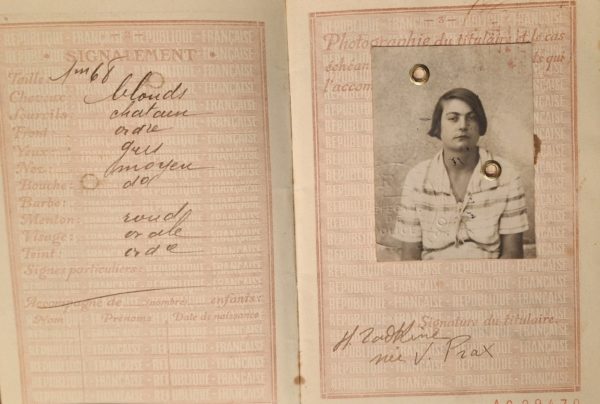 - 2 -
SIGNALEMENT
Taille: 1m68
Cheveux: blonds
Sourcils: chatain
Front: ordre
Yeux: gris
Nez: moyen
Bouche: do
Barbe:
Menton: rond
Visage: ovale
Teint: ordre
Signes particuliers:
Accompagné de (nombre) enfants:
Nom Prénoms Date de naissance
- 3 -
Photographie du titulaire et le cas
échéan ts qui
l'accom
Signature du titulaire.
H. Zadkine
née V. Prax
RÉPUBLIQUE FRANÇAISE